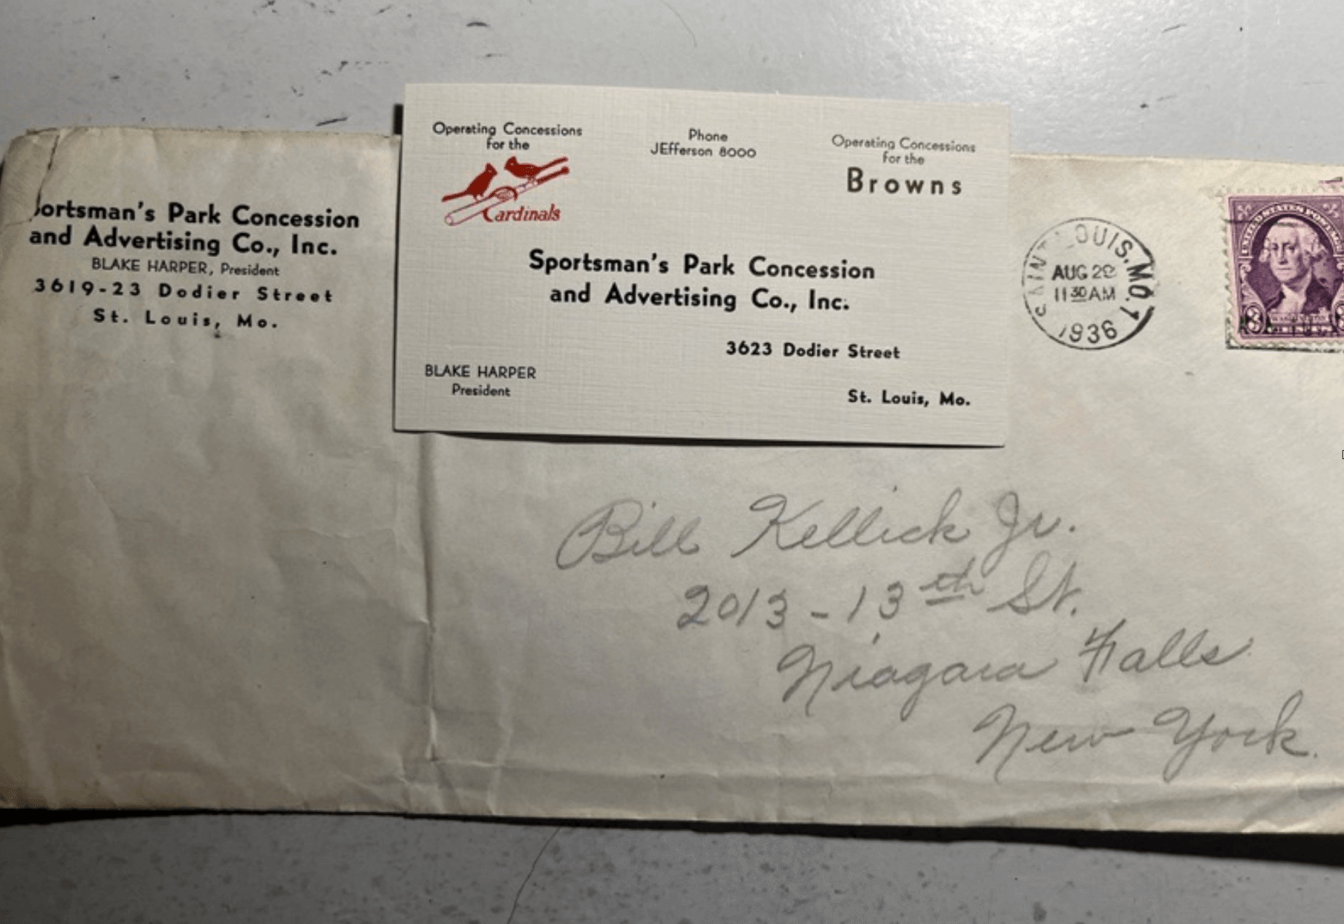 Sportsman's Park Concession
and Advertising Co., Inc.
BLAKE HARPER, President
3619-23 Dodier Street
St. Louis, Mo.
Operating Concessions
for the
Cardinals
Phone
JEfferson 8000
Operating Concessions
for the
Browns
Sportsman's Park Concession
and Advertising Co., Inc.
3623 Dodier Street
BLAKE HARPER
President
St. Louis, Mo.
SAINT LOUIS, MO. 1
AUG 28
11 30 AM
1936
UNITED STATES POSTAGE
WASHINGTON
3
Bill Kellick Jr.
2013-13th St.
Niagara Falls
New York.